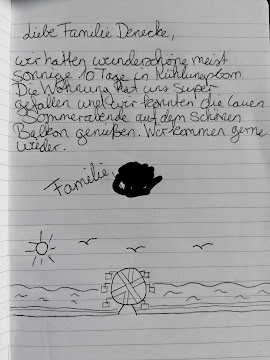 Liebe Familie Denecke,
wir hatten wunderschöne meist
sonnige 10 Tage in Kühlungsborn.
Die Wohnung hat uns super
gefallen und wir konnten die lauen
Sommerabende auf dem schönen
Balkon genießen. Wir kommen gerne
wieder.
Familie